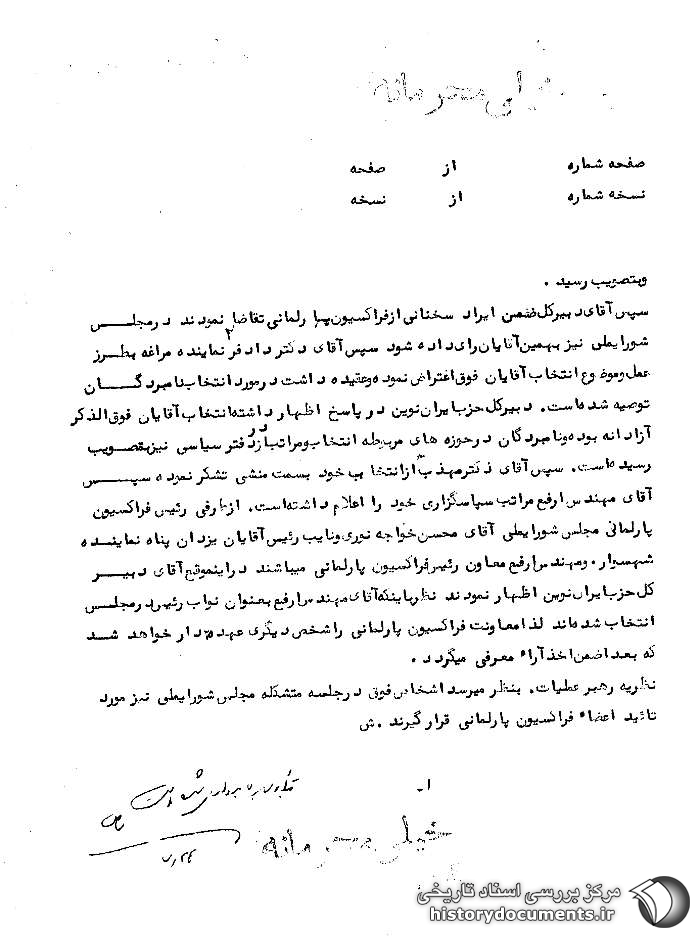 خیلی محرمانه
صفحه شماره از صفحه
نسخه شماره از نسخه
وبتصویب رسید .
سپس آقای دبیرکل ضمن ایراد سخنانی از فراکسیون پارلمانی تقاضا نمودند در مجلس
شورایملی نیز بهمین آقایان رای داده شود سپس آقای دکتر دادفر نماینده مراغه بطرز
عمل وموضوع انتخاب آقایان فوق اعتراض نموده وعقیده داشت در مورد انتخاب نامبردگان
توصیه شده است . دبیرکل حزب ایران نوین در پاسخ اظهار داشته انتخاب آقایان فوق الذکر
آزادانه بوده ونامبردگان در حوزه های مربوطه انتخاب ومراتب در دفتر سیاسی نیز بتصویب
رسیده است . سپس آقای دکتر مهذب از انتخاب خود بسمت منشی تشکر نموده سپس
آقای مهندس ارفع مراتب سپاسگزاری خود را اعلام داشته است . از طرفی رئیس فراکسیون
پارلمانی مجلس شورایملی آقای محسن خواجه نوری ونایب رئیس آقایان یزدان پناه نماینده
شهسوار . ومهندس ارفع معاون رئیس فراکسیون پارلمانی میباشند در اینموقع آقای دبیر
کل حزب ایران نوین اظهار نمودند نظر باینکه آقای مهندس ارفع بعنوان نواب رئیس در مجلس
انتخاب شده اند لذا معاونت فراکسیون پارلمانی را شخص دیگری عهده دار خواهد شد
که بعدا ضمن اخذ آراء معرفی میگردد .
نظریه رهبر عملیات . بنظر میرسد اشخاص فوق در جلسه متشکله مجلس شورایملی نیز مورد
تائید اعضاء فراکسیون پارلمانی قرار گیرند . ش
ا-
۷٫۲۴
خیلی محرمانه
مرکز بررسی اسناد تاریخی
historydocuments.ir